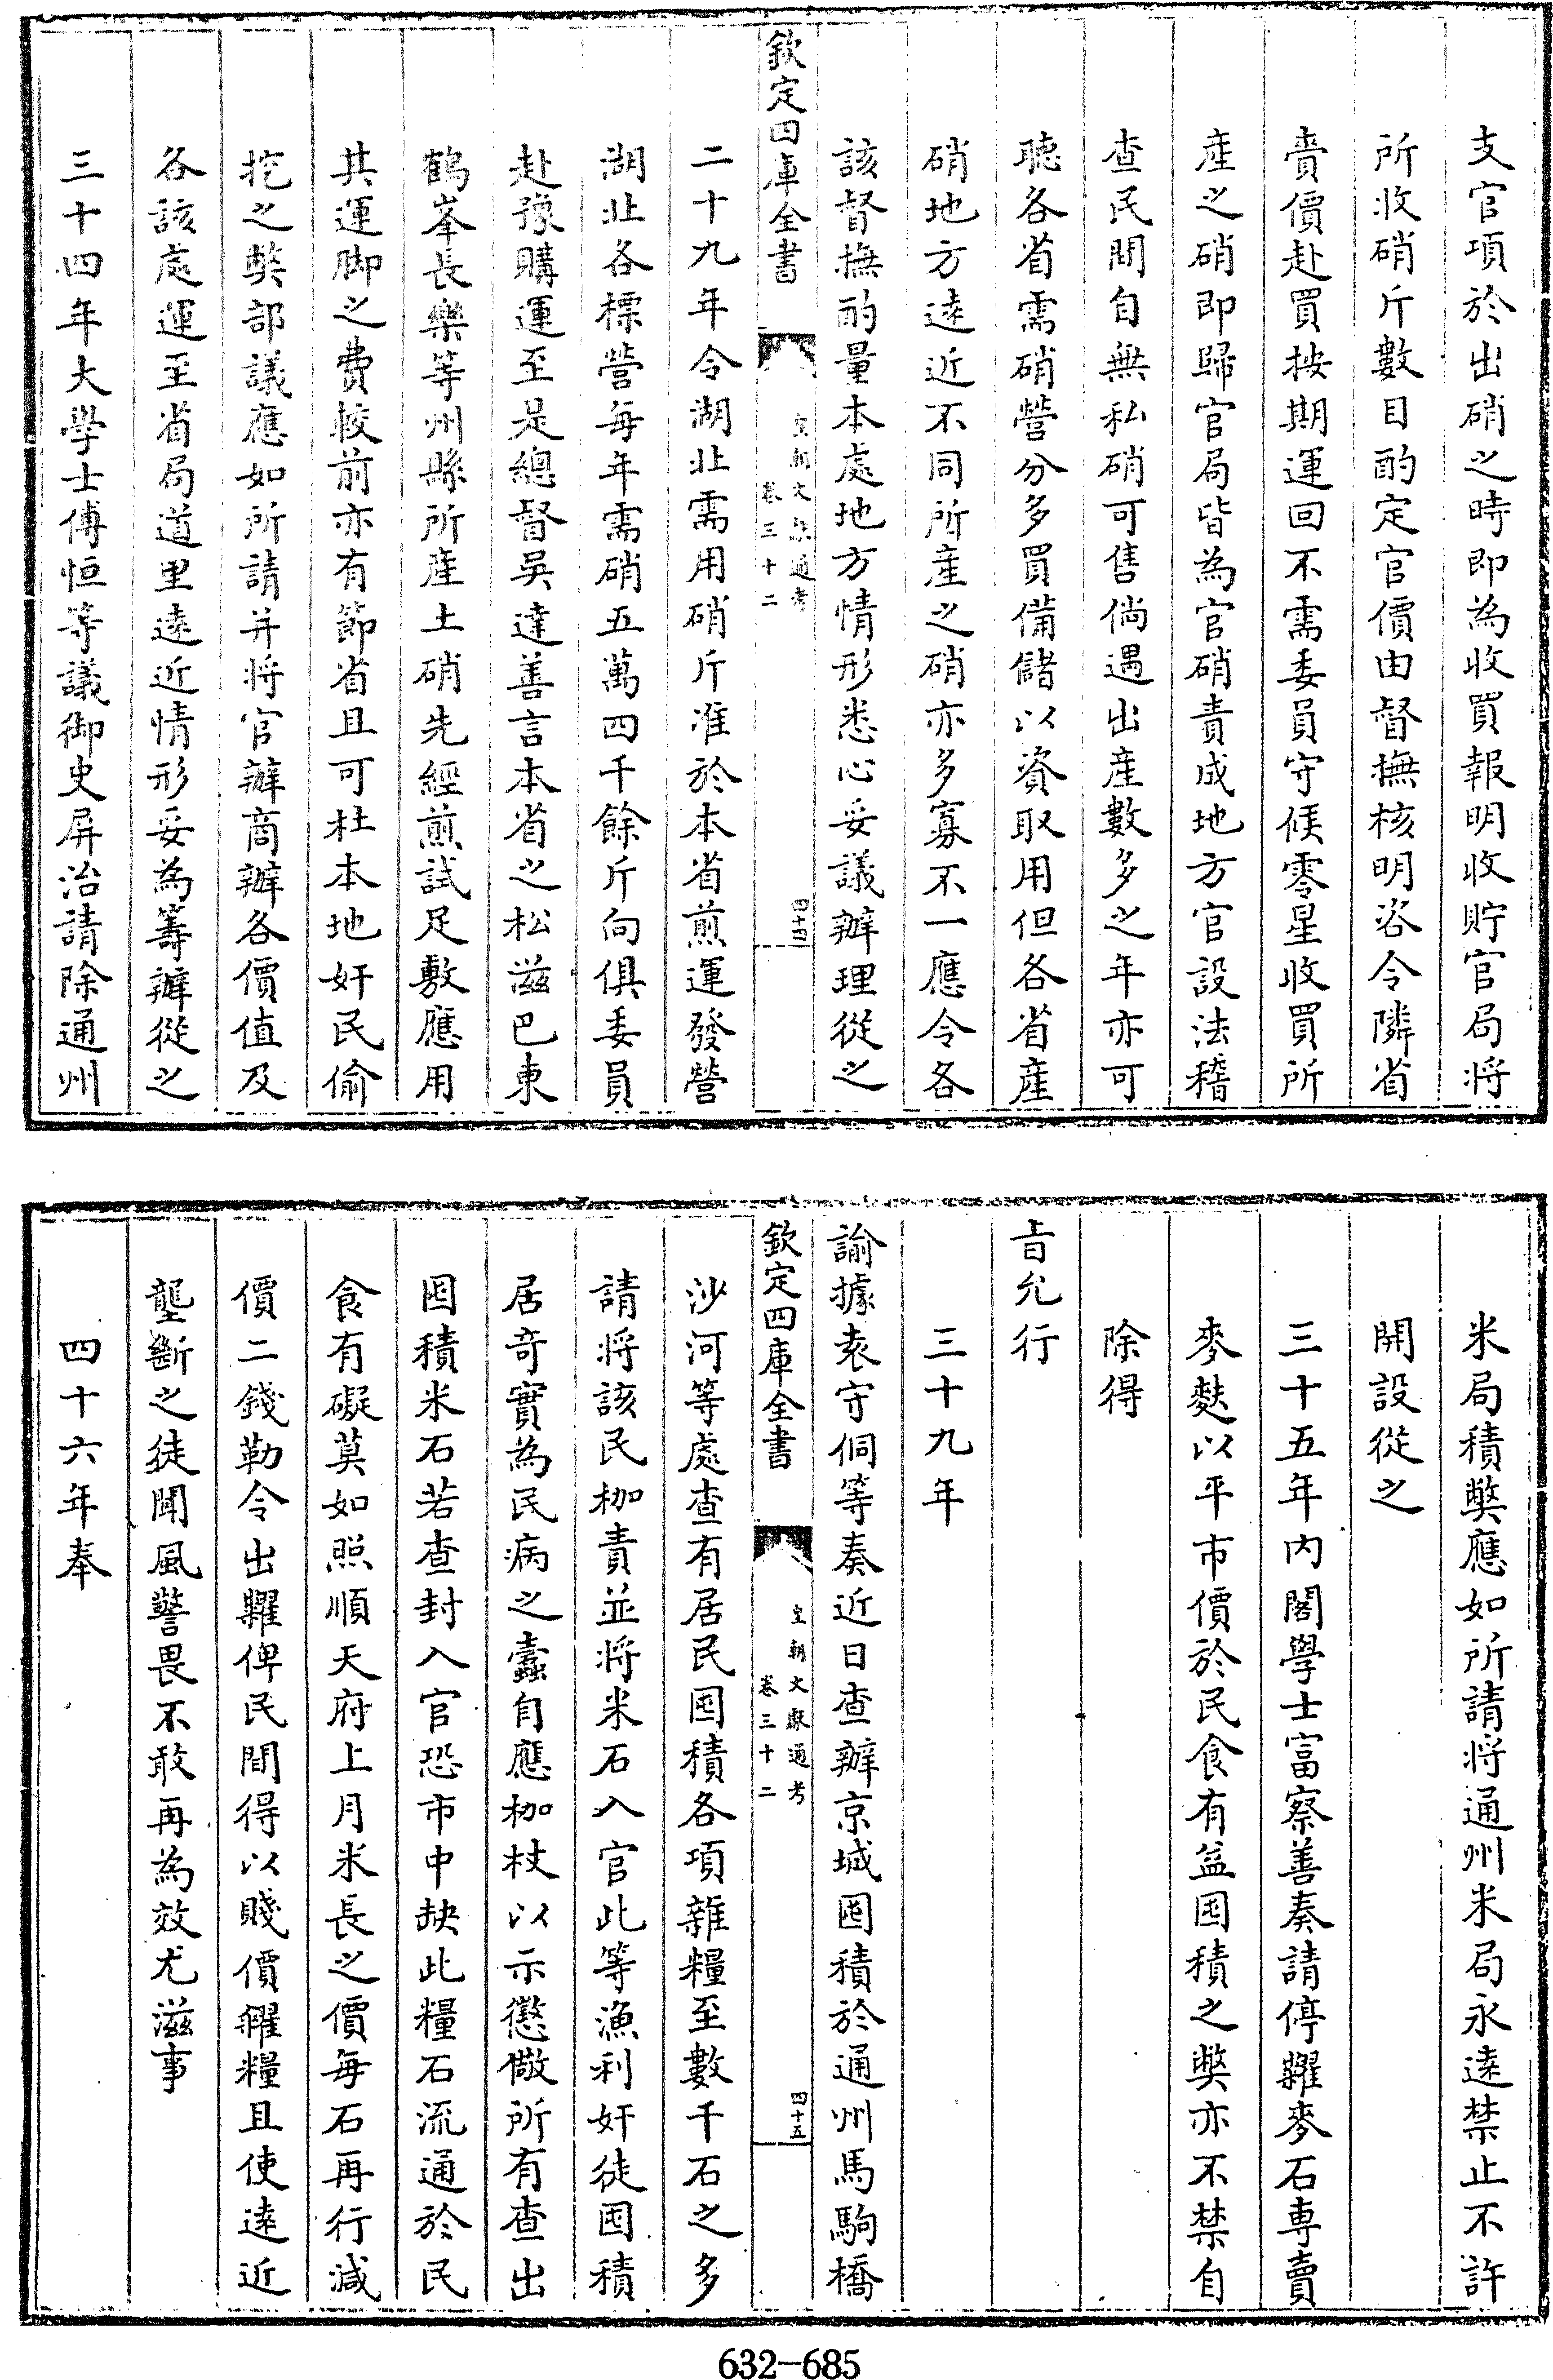 支官項於出硝之時即為收買報明收貯官局將
所收硝斤數目酌定官價由督撫核明咨令隣省
賫價赴買按期運回不需委員守候零星收買所
產之硝即歸官局皆為官硝責成地方官設法稽
查民間自無私硝可售倘遇出產數多之年亦可
聽各省需硝營分多買備儲以資取用但各省產
硝地方遠近不同所產之硝亦多寡不一應令各
該督撫酌量本處地方情形悉心妥議辦理從之
欽定四庫全書
皇朝文獻通考
卷三十二
四十四
二十九年令湖北需用硝斤准於本省煎運發營
湖北各標營每年需硝五萬四千餘斤向俱委員
赴豫購運至是總督吳達善言本省之松滋巴東
鶴峯長樂等州縣所產土硝先經煎試足敷應用
其運脚之費較前亦有節省且可杜本地奸民偷
挖之弊部議應如所請并將官辦商辦各價值及
各該處運至省局道里遠近情形妥為籌辦從之
三十四年大學士傅恒等議御史屏治請除通州
米局積弊應如所請將通州米局永遠禁止不許
開設從之
三十五年內閣學士富察善奏請停糶麥石專賣
麥麩以平市價於民食有益囤積之弊亦不禁自
除得
旨允行
三十九年
諭據袁守侗等奏近日查辦京城囤積於通州馬駒橋
欽定四庫全書
皇朝文獻通考
卷三十二
四十五
沙河等處查有居民囤積各項雜糧至數千石之多
請將該民枷責並將米石入官此等漁利奸徒囤積
居奇實為民病之蠹自應枷杖以示懲儆所有查出
囤積米石若查封入官恐市中缺此糧石流通於民
食有礙莫如照順天府上月米長之價每石再行減
價二錢勒令出糶俾民間得以賤價糴糧且使遠近
壟斷之徒聞風警畏不敢再為效尤滋事
四十六年奉
632-685